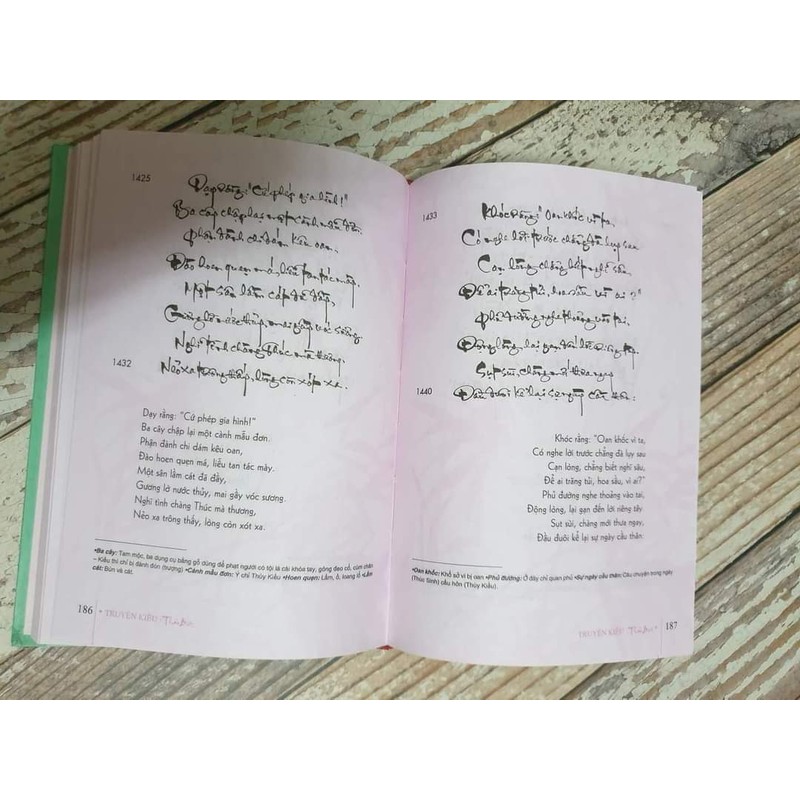 1425
Dạy rằng: "Cứ phép gia hình!"
Ba cây chập lại một cành mẫu đơn.
Phận đành chi dám kêu oan,
Đào hoen quẹn má, liễu tan tác mày.
Một sân lầm cát đã đầy,
Gương lờ nước thủy, mai gầy vóc sương.
Nghĩ tình chàng Thúc mà thương,
1432
Nẻo xa trông thấy, lòng càng xót xa.
Dạy rằng: "Cứ phép gia hình!"
Ba cây chập lại một cành mẫu đơn.
Phận đành chi dám kêu oan,
Đào hoen quẹn má, liễu tan tác mày.
Một sân lầm cát đã đầy,
Gương lờ nước thủy, mai gầy vóc sương.
Nghĩ tình chàng Thúc mà thương,
Nẻo xa trông thấy, lòng còn xót xa.
•Ba cây: Tam mộc, ba dụng cụ bằng gỗ dùng để phạt người có tội là cái khóa tay, gông đeo cổ, cùm chân
– Kiều thì chỉ bị đánh đòn (trượng) •Cành mẫu đơn: Ý chỉ Thúy Kiều •Hoen quẹn: Lấm, ố, loang lổ •Lầm
cát: Bùn và cát.
186
• TRUYỆN KIỀU
1433
Khóc rằng: "Oan khốc vì ta,
Có nghe lời trước chẳng đà lụy sau
Cạn lòng chẳng biết nghĩ sâu,
Để ai trăng tủi, hoa sầu vì ai?"
Phủ đường nghe thoảng vào tai,
Động lòng, lại gạn đến lời riêng tây
Sụt sùi, chàng mới thưa ngay,
1440
Đầu đuôi kể lại sự ngày cầu thân:
Khóc rằng: "Oan khốc vì ta,
Có nghe lời trước chẳng đà lụy sau
Cạn lòng, chẳng biết nghĩ sâu,
Để ai trăng tủi, hoa sầu, vì ai?"
Phủ đường nghe thoảng vào tai,
Động lòng, lại gạn đến lời riêng tây
Sụt sùi, chàng mới thưa ngay,
Đầu đuôi kể lại sự ngày cầu thân:
•Oan khốc: Khổ sở vì bị oan •Phủ đường: Ở đây chỉ quan phủ •Sự ngày cầu thân: Câu chuyện trong ngày
(Thúc Sinh) cầu hôn (Thúy Kiều).
TRUYỆN KIỀU
187